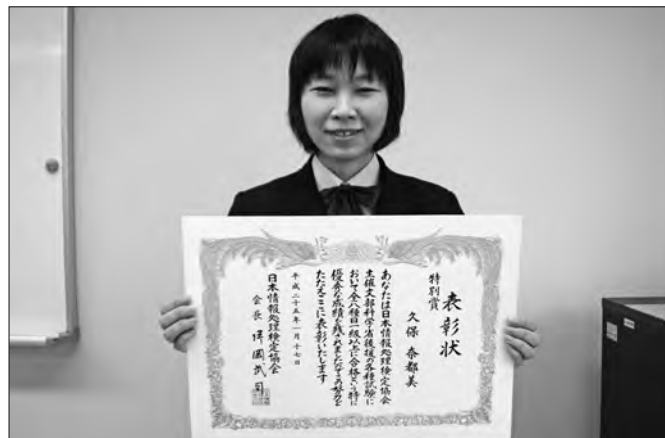 表彰状
特別賞
久保 奈都美
あなたは日本情報処理検定協会
主催文部科学省後援の各種試験に
おいて全八種目一級以上に合格という特に
優秀な成績を残されましたのでその努力を
たたえここに表彰いたします
平成二十五年一月十七日
日本情報処理検定協会
会長